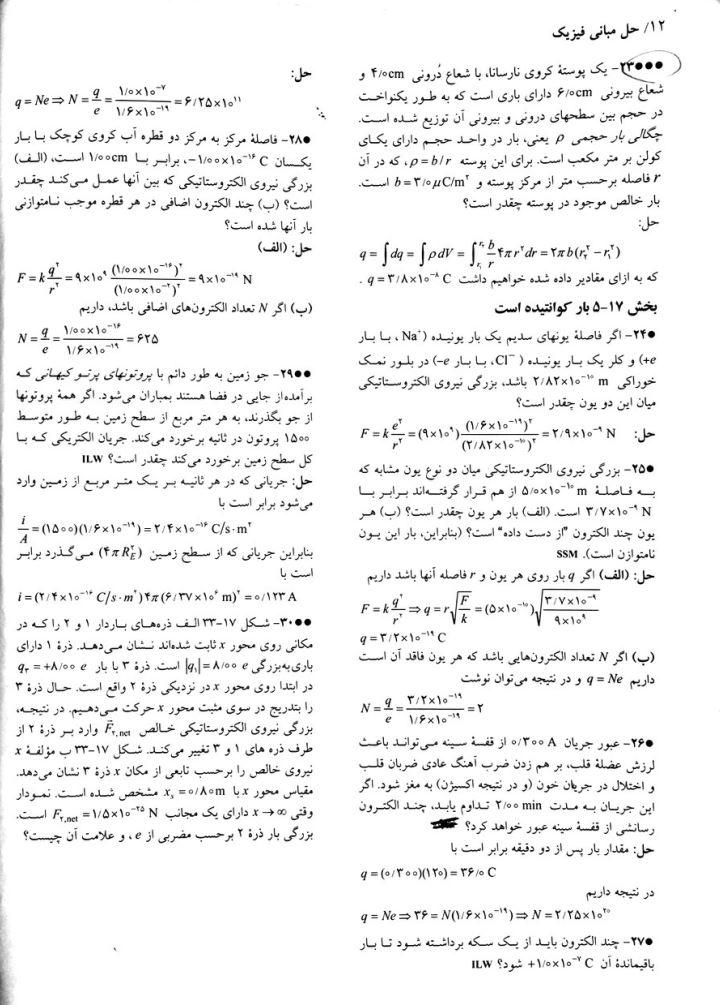 ۱۲/ حل مبانی فیزیک
●●●۲۳– یک پوستهٔ کروی نارسانا، با شعاع دُرونی ۴/۰cm و
شعاع بیرونی ۶/۰cm دارای باری است که به طور یکنواخت
در حجم بین سطحهای درونی و بیرونی آن توزیع شده است.
چگالی بار حجمی ρ یعنی، بار در واحد حجم دارای یکای
کولن بر متر مکعب است. برای این پوسته ρ = b/r، که در آن
r فاصله برحسب متر از مرکز پوسته و b = ۳/۰ μC/m² است.
بار خالص موجود در پوسته چقدر است؟
حل:
q = ∫dq = ∫ρdV = ∫_{r₁}^{r₂} (b/r) ۴πr²dr = ۲πb(r₂² – r₁²)
که به ازای مقادیر داده شده خواهیم داشت q = ۳/۸×۱۰⁻⁸ C .
بخش ۱۷-۵ بار کوانتیده است
●۲۴– اگر فاصلهٔ یونهای سدیم یک بار یونیده (Na⁺، با بار
+e) و کلر یک بار یونیده (Cl⁻، با بار –e) در بلور نمک
خوراکی ۲/۸۲×۱۰⁻¹⁰ m باشد، بزرگی نیروی الکتروستاتیکی
میان این دو یون چقدر است؟
حل: F = k e²/r² = (۹×۱۰⁹) (۱/۶×۱۰⁻¹⁹)²/(۲/۸۲×۱۰⁻¹⁰)² = ۲/۹×۱۰⁻⁹ N
●۲۵– بزرگی نیروی الکتروستاتیکی میان دو نوع یون مشابه که
به فاصلهٔ ۵/۰×۱۰⁻¹⁰ m از هم قرار گرفته‌اند برابر با
۳/۷×۱۰⁻⁹ N است. (الف) بار هر یون چقدر است؟ (ب) هر
یون چند الکترون "از دست داده" است؟ (بنابراین، بار این یون
نامتوازن است). SSM
حل: (الف) اگر q بار روی هر یون و r فاصله آنها باشد داریم
F = k q²/r² ⇒ q = r√(F/k) = (۵×۱۰⁻¹⁰) √(۳/۷×۱۰⁻⁹/۹×۱۰⁹)
q = ۳/۲×۱۰⁻¹⁹ C
(ب) اگر N تعداد الکترون‌هایی باشد که هر یون فاقد آن است
داریم q = Ne و در نتیجه می‌توان نوشت
N = q/e = ۳/۲×۱۰⁻¹⁹/۱/۶×۱۰⁻¹⁹ = ۲
●۲۶– عبور جریان ۰/۳۰۰ A از قفسهٔ سینه می‌تواند باعث
لرزش عضلهٔ قلب، بر هم زدن ضرب آهنگ عادی ضربان قلب
و اختلال در جریان خون (و در نتیجه اکسیژن) به مغز شود. اگر
این جریان به مدت ۲/۰۰ min تداوم یابد، چند الکترون
رسانشی از قفسهٔ سینه عبور خواهد کرد؟
حل: مقدار بار پس از دو دقیقه برابر است با
q = (۰/۳۰۰)(۱۲۰) = ۳۶/۰ C
در نتیجه داریم
q = Ne ⇒ ۳۶ = N(۱/۶×۱۰⁻¹⁹) ⇒ N = ۲/۲۵×۱۰²⁰
●۲۷– چند الکترون باید از یک سکه برداشته شود تا بار
باقیماندهٔ آن +۱/۰×۱۰⁻⁷ C شود؟ ILW
حل:
q = Ne ⇒ N = q/e = ۱/۰×۱۰⁻⁷/۱/۶×۱۰⁻¹⁹ = ۶/۲۵×۱۰¹¹
●۲۸– فاصلهٔ مرکز به مرکز دو قطره آب کروی کوچک با بار
یکسان –۱/۰۰×۱۰⁻¹⁶ C، برابر با ۱/۰۰cm است، (الف)
بزرگی نیروی الکتروستاتیکی که بین آنها عمل می‌کند چقدر
است؟ (ب) چند الکترون اضافی در هر قطره موجب نامتوازنی
بار آنها شده است؟
حل: (الف)
F = k q²/r² = ۹×۱۰⁹ (۱/۰۰×۱۰⁻¹⁶)²/(۱/۰۰×۱۰⁻²)² = ۹×۱۰⁻¹⁹ N
(ب) اگر N تعداد الکترون‌های اضافی باشد، داریم
N = q/e = ۱/۰۰×۱۰⁻¹⁶/۱/۶×۱۰⁻¹⁹ = ۶۲۵
●●۲۹– جو زمین به طور دائم با پروتونهای پرتو کیهانی که
برآمده‌از جایی در فضا هستند بمباران می‌شود. اگر همهٔ پروتونها
از جو بگذرند، به هر متر مربع از سطح زمین به طور متوسط
۱۵۰۰ پروتون در ثانیه برخورد می‌کند. جریان الکتریکی که با
کل سطح زمین برخورد می‌کند چقدر است؟ ILW
حل: جریانی که در هر ثانیه بر یک متر مربع از زمین وارد
می‌شود برابر است با
i/A = (۱۵۰۰)(۱/۶×۱۰⁻¹⁹) = ۲/۴×۱۰⁻¹⁶ C/s·m²
بنابراین جریانی که از سطح زمین (۴πR_E²) می‌گذرد برابر
است با
i = (۲/۴×۱۰⁻¹⁶ C/s·m²)۴π(۶/۳۷×۱۰⁶ m)² = ۰/۱۲۳ A
●●۳۰– شکل ۱۷-۳۳ الف ذره‌های باردار ۱ و ۲ را که در
مکانی روی محور x ثابت شده‌اند نشان می‌دهد. ذرهٔ ۱ دارای
باری به‌بزرگی |q₁| = ۸/۰۰ e است. ذرهٔ ۳ با بار q₃ = +۸/۰۰ e
در ابتدا روی محور x در نزدیکی ذرهٔ ۲ واقع است. حال ذرهٔ ۳
را بتدریج در سوی مثبت محور x حرکت می‌دهیم. در نتیجه،
بزرگی نیروی الکتروستاتیکی خالص F⃗₂,net وارد بر ذرهٔ ۲ از
طرف ذره های ۱ و ۳ تغییر می‌کند. شکل ۱۷-۳۳ ب مؤلفهٔ x
نیروی خالص را برحسب تابعی از مکان x ذرهٔ ۳ نشان می‌دهد.
مقیاس محور x با xₛ = ۰/۸۰ m مشخص شده است. نمودار
وقتی x → ∞ دارای یک مجانب F₂,net = ۱/۵×۱۰⁻²⁵ N است.
بزرگی بار ذرهٔ ۲ برحسب مضربی از e، و علامت آن چیست؟